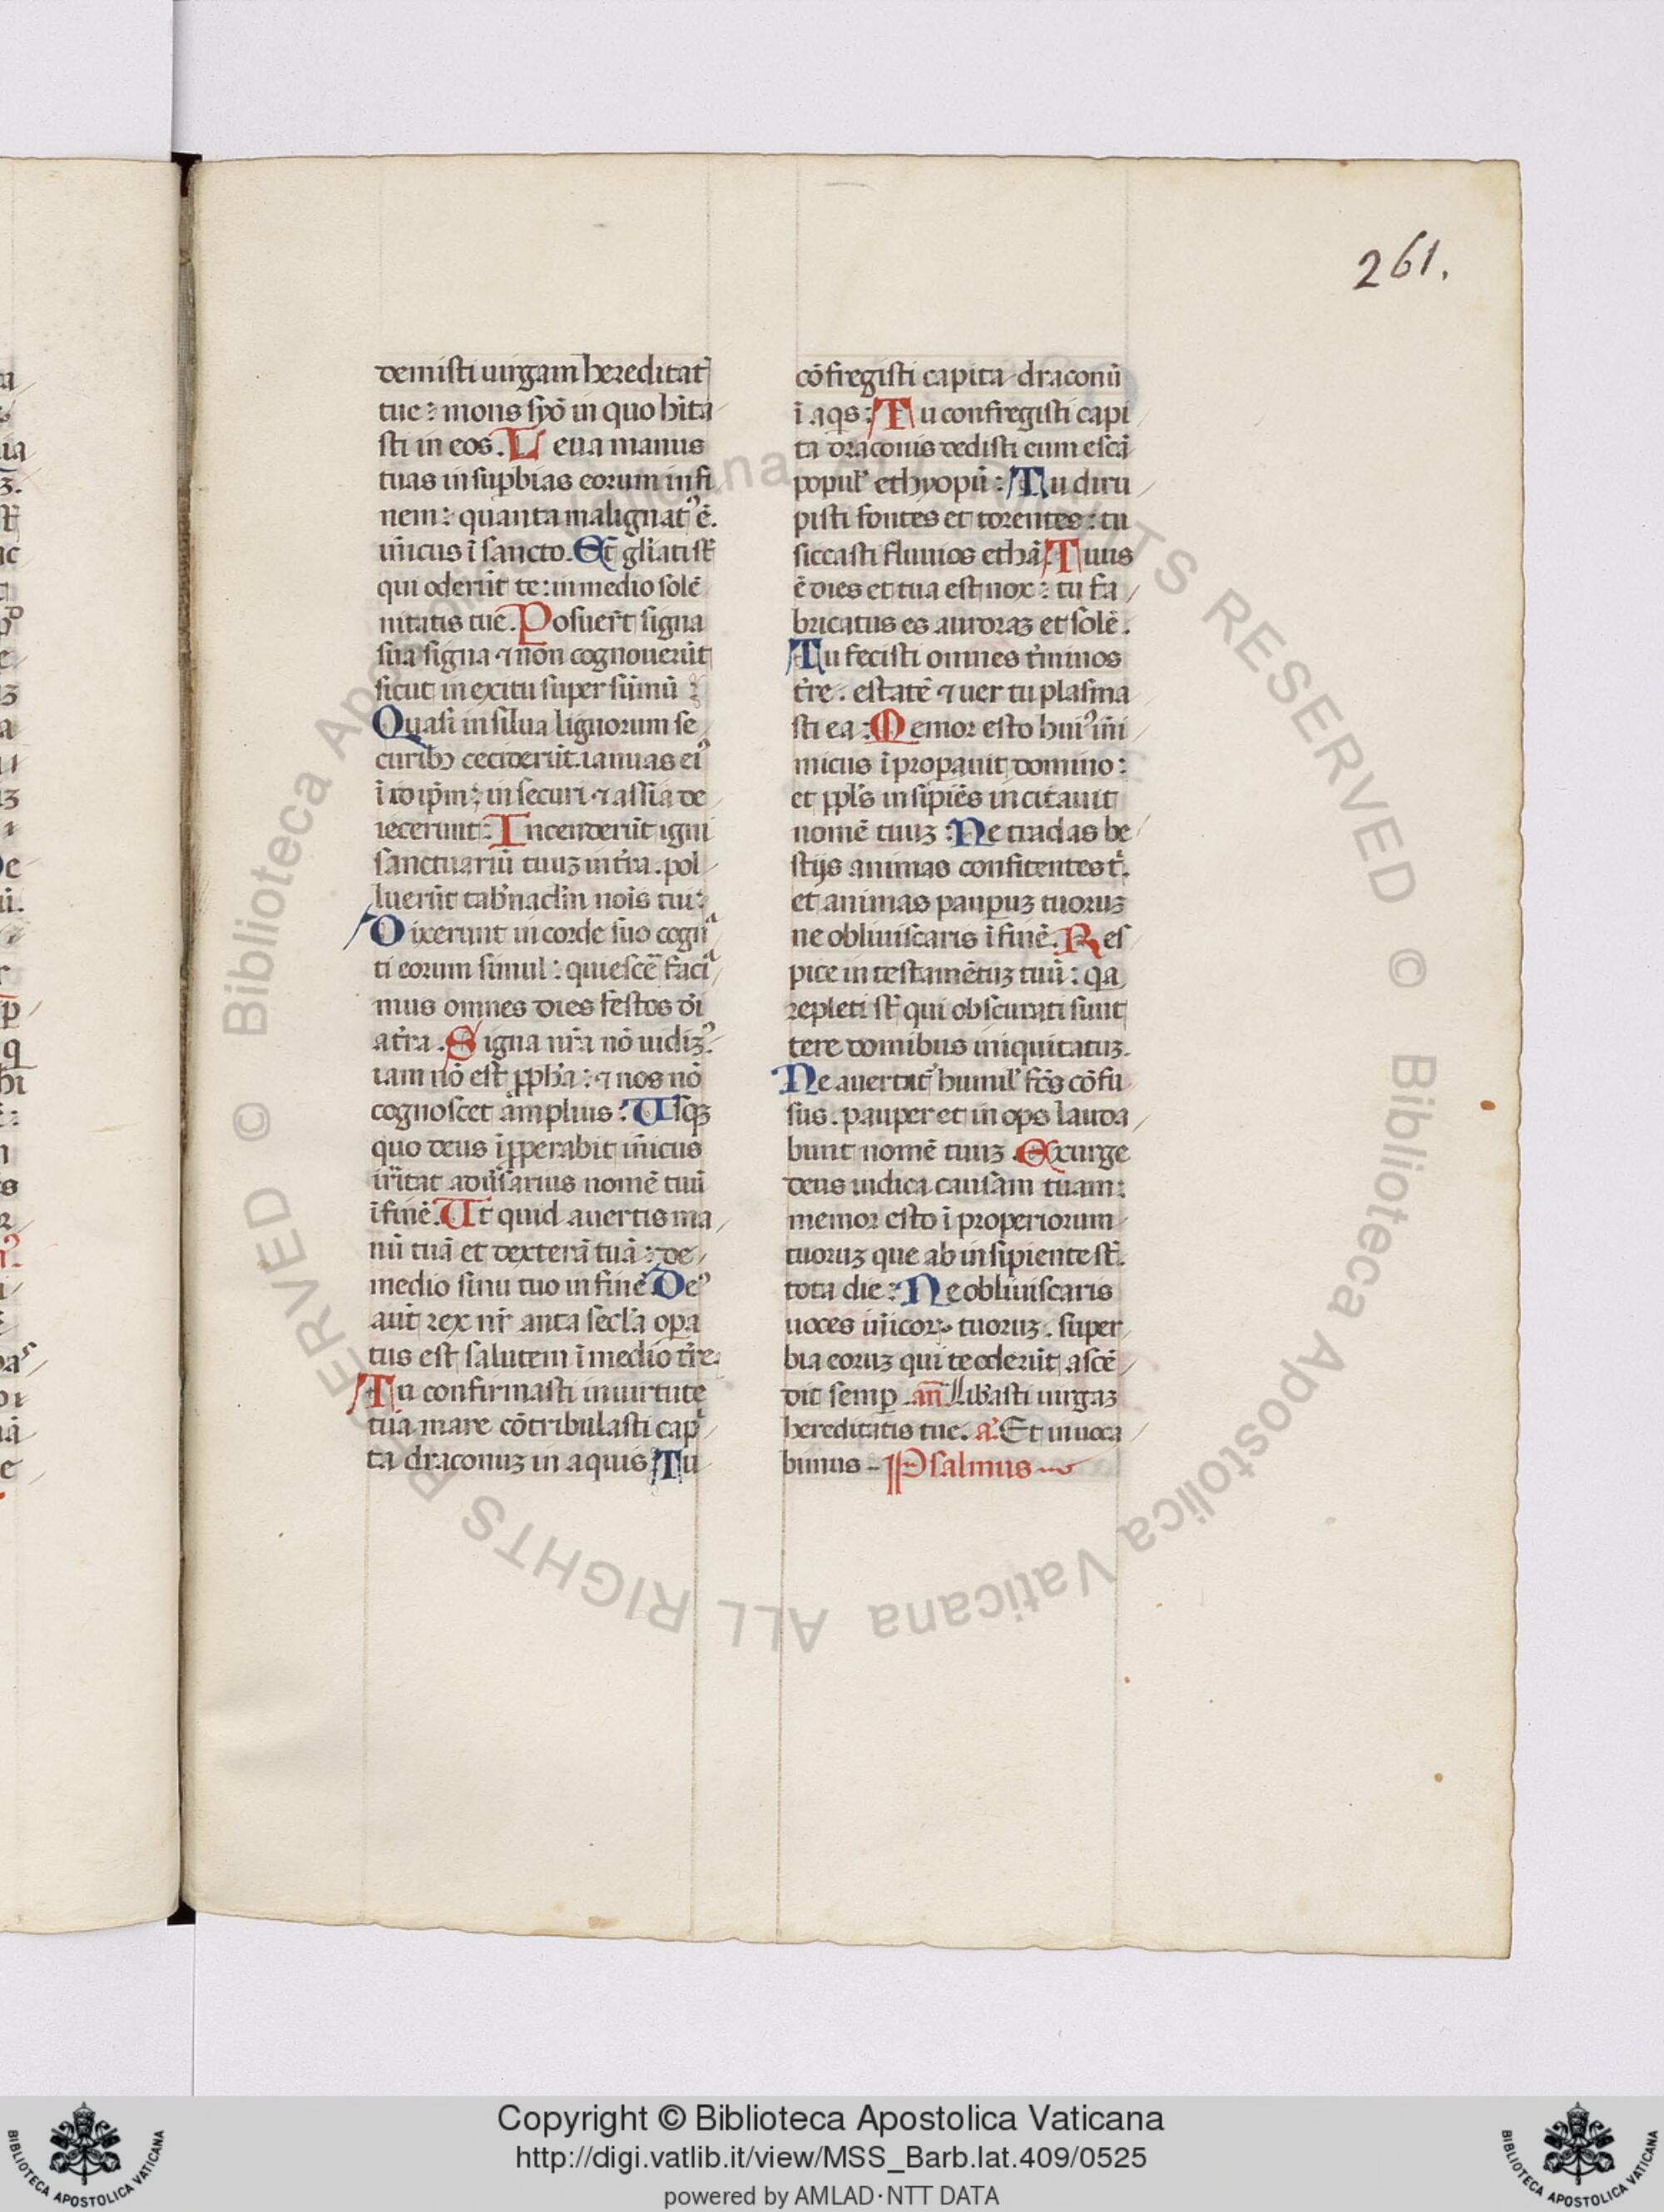 261.
demisti uirgam hereditat᷒
tue : mons syō in quo hīta
sti in eos . Leua manus
tuas in supbias eorum in fi
nem : quanta malignat᷒ ē .
īnicus ī sancto . Et gl̄iati st̄
qui oderūt te : in medio solē
nitatis tue . Posuert̄ signa
sua signa ⁊ non cognouerūt
sicut in exitu super sūmū :
Quasi in silua lignorum se
curibȝ ceciderūt . ianuas ei᷒
ī id ip̄m : in securi ⁊ assia de
iecerunt : Incenderūt igni
sanctuariū tuuȝ in tr̄a . pol
luerūt tab̄nacl̄m nōis tui :
Dixerunt in corde suo cogn
ti eorum simul : quiescē faci
mus omnes dies festos dī
a tr̄a . Signa nr̄a nō uidiȝ᷒
iam nō est ꝓph̄a : ⁊ nos nō
cognoscet amplius : Usqȝ
quo deus īꝓperabit īnicus
irr̄itat adūsarius nomē tuū
ī finē . Ut quid auertis ma
nū tuā et dexterā tuā : de
medio sinu tuo in finē De᷒
aūt rex nr̄ anta secl̄a opa
tus est salutem ī medio tr̄e .
Tu confirmasti in uirtute
tua mare cōtribulasti cap
ta draconuȝ in aquis Tu
cōfregisti capita draconū
ī aqs : Tu confregisti capi
ta draconis dedisti eum escā
popul᷒ ethyopū : Tu diru
pisti fontes et torentes : tu
siccasti fluuios ethā Tuus
ē dies et tua est nox : tu fa
bricatus es auroraȝ et solē .
Tu fecisti omnes t̄minos
tr̄e . estatē ⁊ uer tu plasma
sti ea : Memor esto hui᷒ īni
micus īpropauit domino :
et ppl̄s insipiēs incitauit
nomē tuuȝ : Ne tradas be
stijs animas confitentes t .
et animas paupuȝ tuoruȝ
ne obliuiscaris ī finē . Res
pice in testamētuȝ tuū : qa
repleti st̄ qui obscurati sunt
tere domibus iniquitatuȝ .
Ne auertat᷒ humil᷒ fc̄s cōfu
sus . pauper et inops lauda
bunt nomē tuuȝ . Exurge
deus iudica causam tuam :
memor esto īproperiorum
tuoruȝ que ab insipiente st̄ .
tota die : Ne obliuiscaris
uoces īnicoꝝ tuoruȝ . super
bia eoruȝ qui te oderūt ascē
dit semp . an̄ Lib̄asti uirgaȝ
hereditatis tue . a᷒ . Et inuoca
bimus - Psalmus
Copyright © Biblioteca Apostolica Vaticana
http://digi.vatlib.it/view/MSS_Barb.lat.409/0525
powered by AMLAD·NTT DATA
BIBLIOTECA APOSTOLICA VATICANA
BIBLIOTECA APOSTOLICA VATICANA
© Biblioteca Apostolica Vaticana ALL RIGHTS RESERVED
© Biblioteca Apostolica Vaticana ALL RIGHTS RESERVED